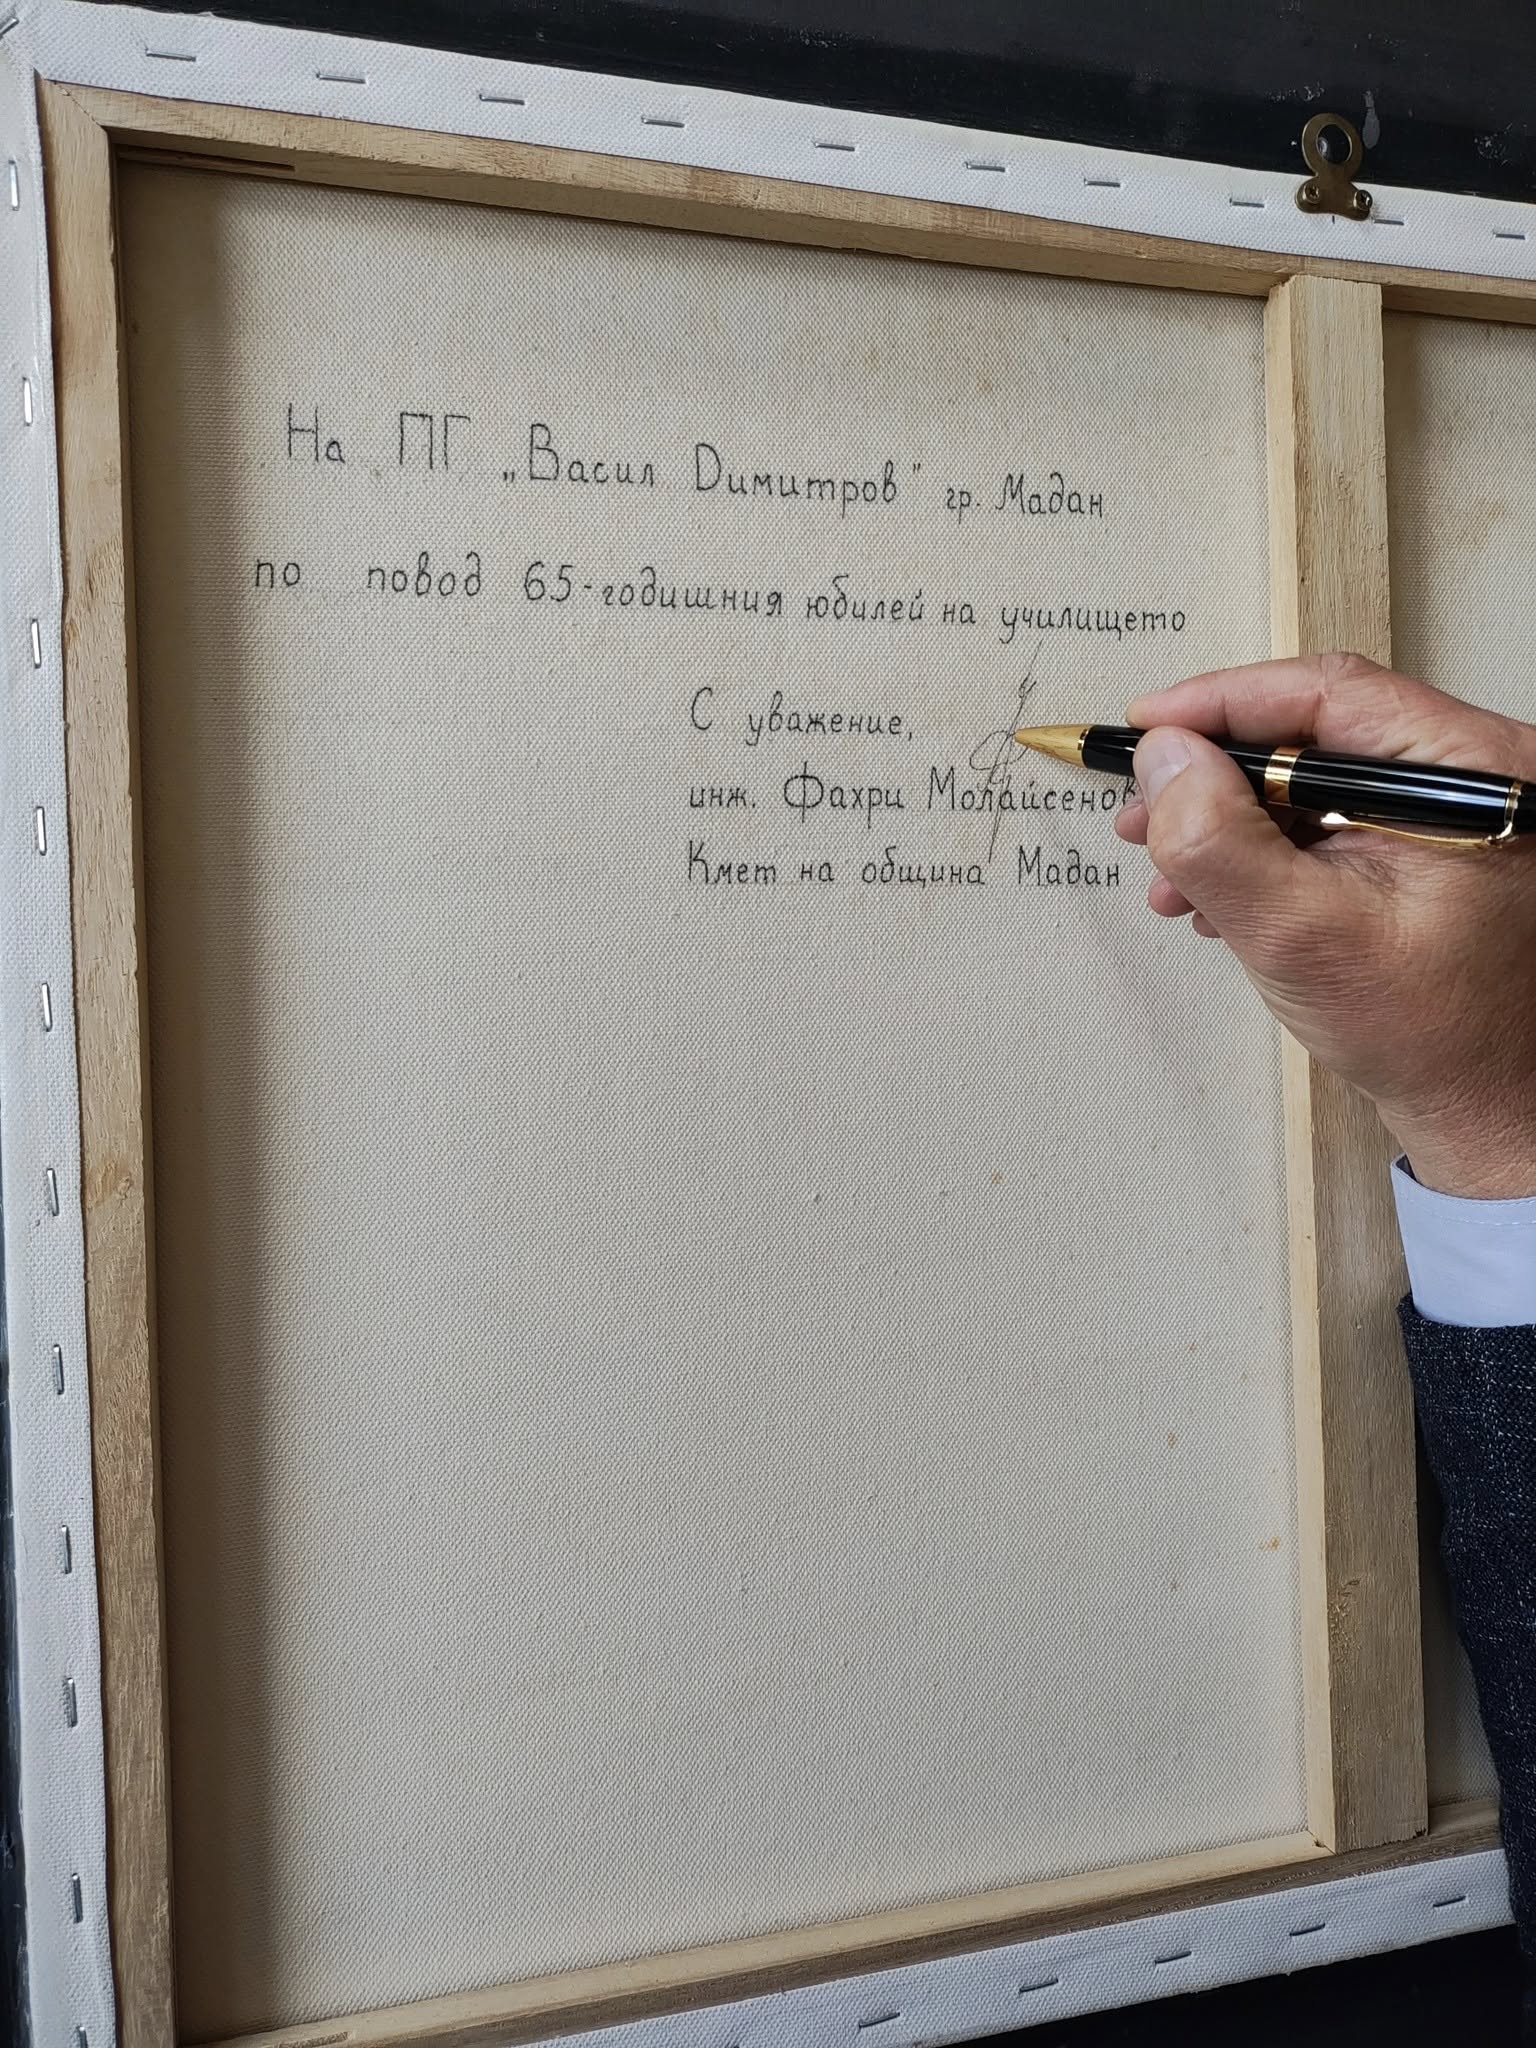 На ПГ „Васил Димитров" гр. Мадан
по повод 65-годишния юбилей на училището
С уважение,
инж. Фахри Молайсенов
Кмет на община Мадан